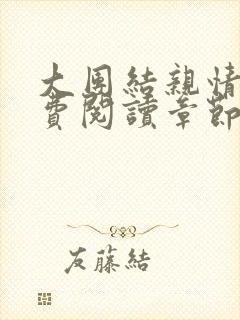 大團結親情
費閱讀章節
友藤結